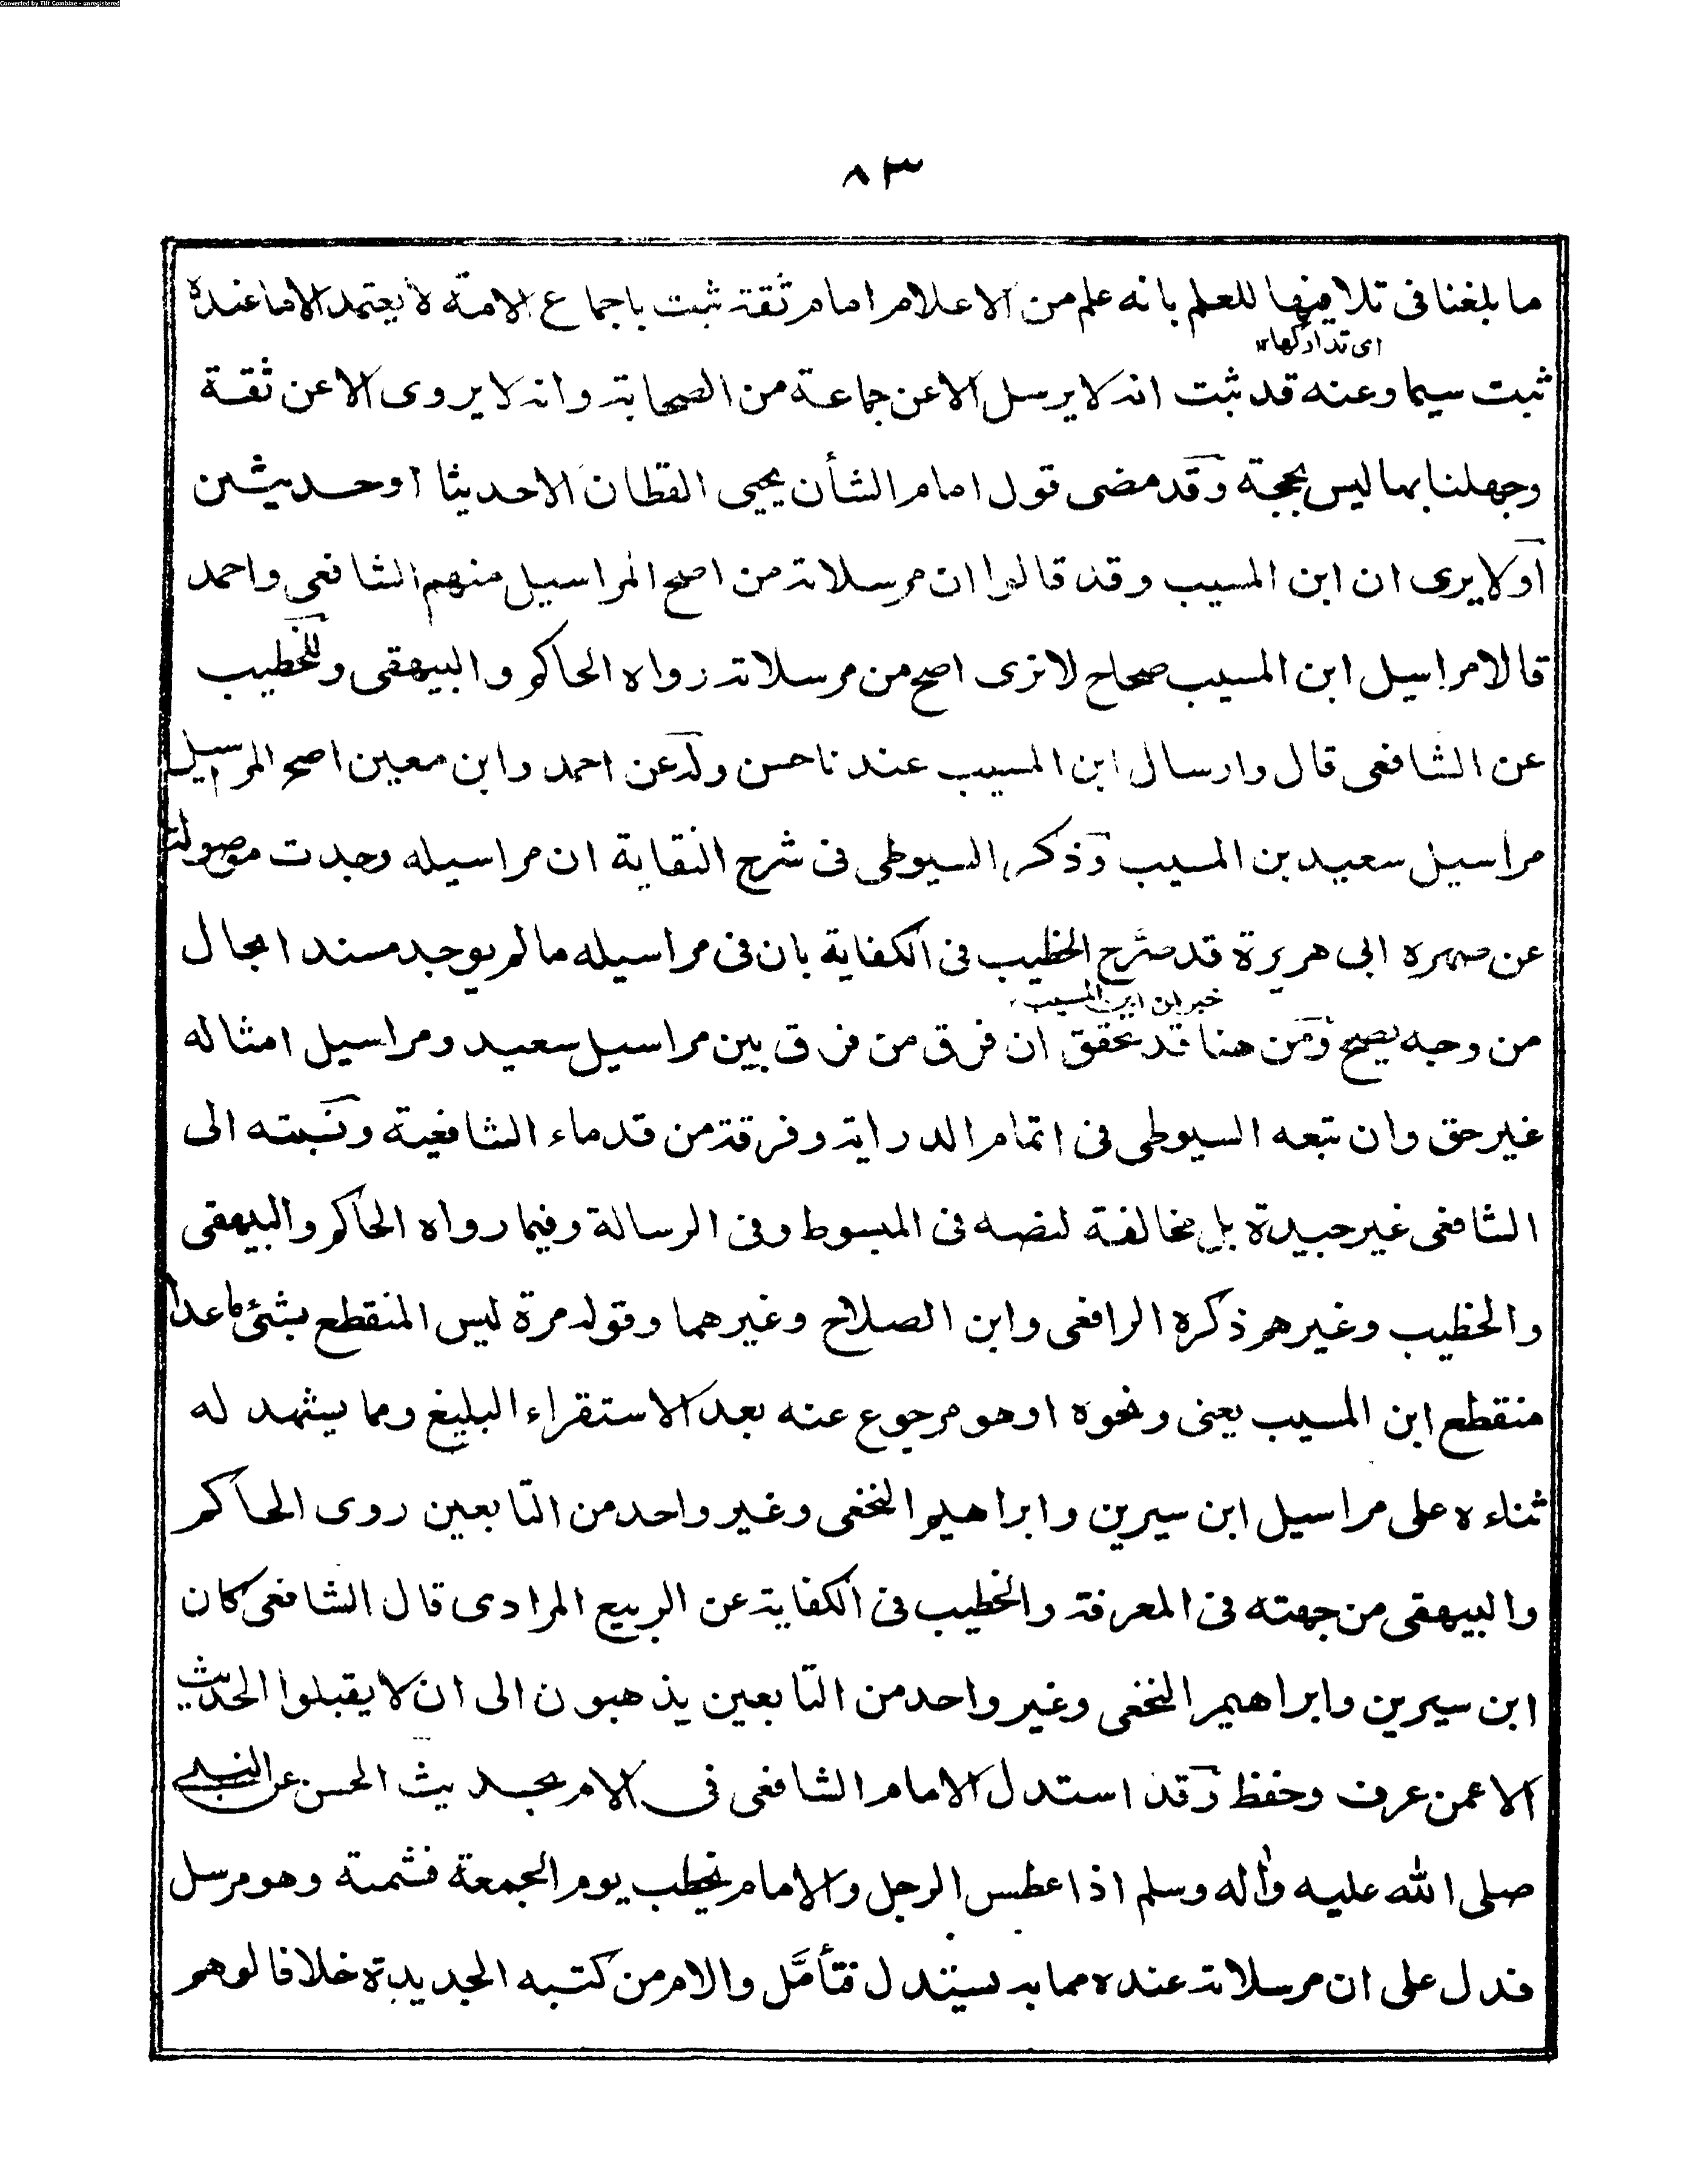 Converted by Tiff Combine - unregistered
٨٣
ما بلغنا فى تلافيها للعلم بانه علم من الاعلام امام ثقة ثبت باجماع الامة لا يعتمد الا ما عنده
اى تداركها ١٢
ثبت سيما وعنه قد ثبت انه لا يرسل الا عن جماعة من الصحابة وانه لا يروى الا عن ثقة
وجهلنا بها ليس بحجة وقد مضى قول امام الشأن يحيى القطان الا حديثا اوحديثين
اولا يرى ان ابن المسيب وقد قالوا ان مرسلاته من اصح المراسيل منهم الشافعى واحمد
قالا مراسيل ابن المسيب صحاح لا نرى اصح من مرسلاته رواه الحاكم والبيهقى وللخطيب
عن الشافعى قال وارسال ابن المسيب عندنا حسن وله عن احمد وابن معين اصح المراسيل
مراسيل سعيد بن المسيب وذكر السيوطى فى شرح النقاية ان مراسيله وجدت موصولة
عن صهره ابى هريرة قد صرح الخطيب فى الكفاية بان فى مراسيله ما لم يوجد مسندا بحال
خبر ان ابن المسيب
من وجه يصح ومن هنا قد تحقق ان فرق من فرق بين مراسيل سعيد ومراسيل امثاله
غير حق وان تبعه السيوطى فى اتمام الدراية وفرقة من قدماء الشافعية ونسبته الى
الشافعى غير جيدة بل مخالفة لنصه فى المبسوط وفى الرسالة وفيما رواه الحاكم والبيهقى
والخطيب وغيرهم ذكره الرافعى وابن الصلاح وغيرهما وقوله مرة ليس المنقطع بشئ ما عدا
منقطع ابن المسيب يعنى ونحوه اوهو مرجوع عنه بعد الاستقراء البليغ ومما يشهد له
ثناءه على مراسيل ابن سيرين وابراهيم النخعى وغير واحد من التابعين روى الحاكم
والبيهقى من جهته فى المعرفة والخطيب فى الكفاية عن الربيع المرادى قال الشافعى كان
ابن سيرين وابراهيم النخعى وغير واحد من التابعين يذهبون الى ان لا يقبلوا الحديث
الا عمن عرف وحفظ وقد استدل الامام الشافعى فى الام بحديث الحسن عن النبى
صلى الله عليه واله وسلم اذا عطس الرجل والامام يخطب يوم الجمعة فشمته وهو مرسل
فدل على ان مرسلاته عنده مما به يستدل فتأمل والام من كتبه الجديدة خلافا لوهم